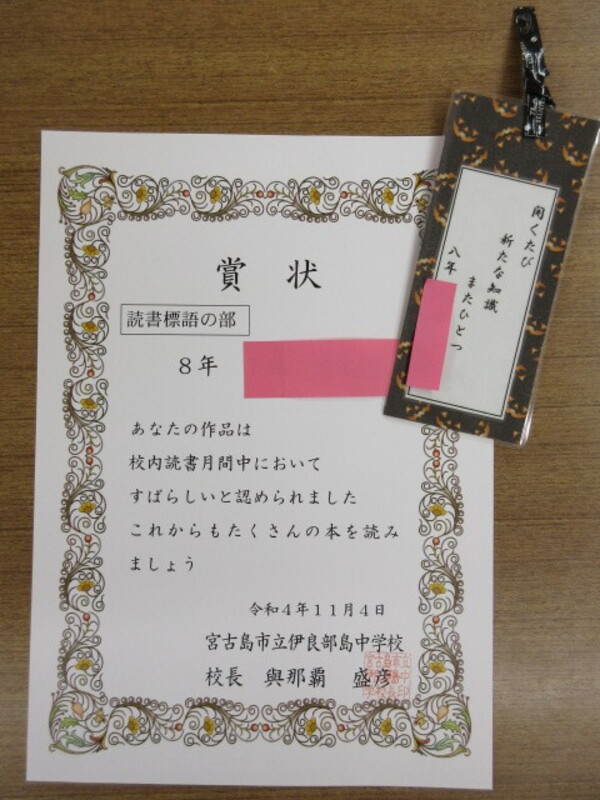 賞状
読書標語の部
8年
あなたの作品は
校内読書月間中において
すばらしいと認められました
これからもたくさんの本を読み
ましょう
令和4年11月4日
宮古島市立伊良部島中学校
校長 與那覇 盛彦
開くたび
新たな知識
またひとつ
八年